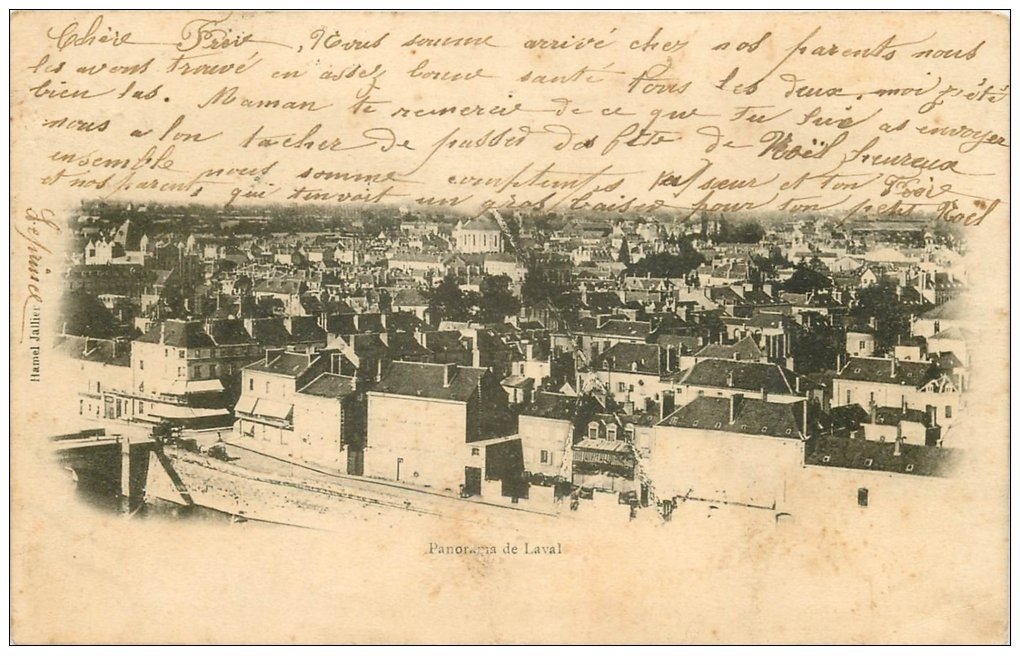 Chère Frère, Nous somme arrivé chez nos parents nous
les avons trouvé en assez bonne santé tous les deux, moi j'été
bien las. Maman te remercie de ce que tu lui as envoyer
nous allon tacher de passer des fête de Noël heureux
ensemble nous somme comptemps ta sœur et ton Frère
et nos parents qui tenvoit un gros baiser pour ton petit Noël
Hamel Jallier
Panorama de Laval